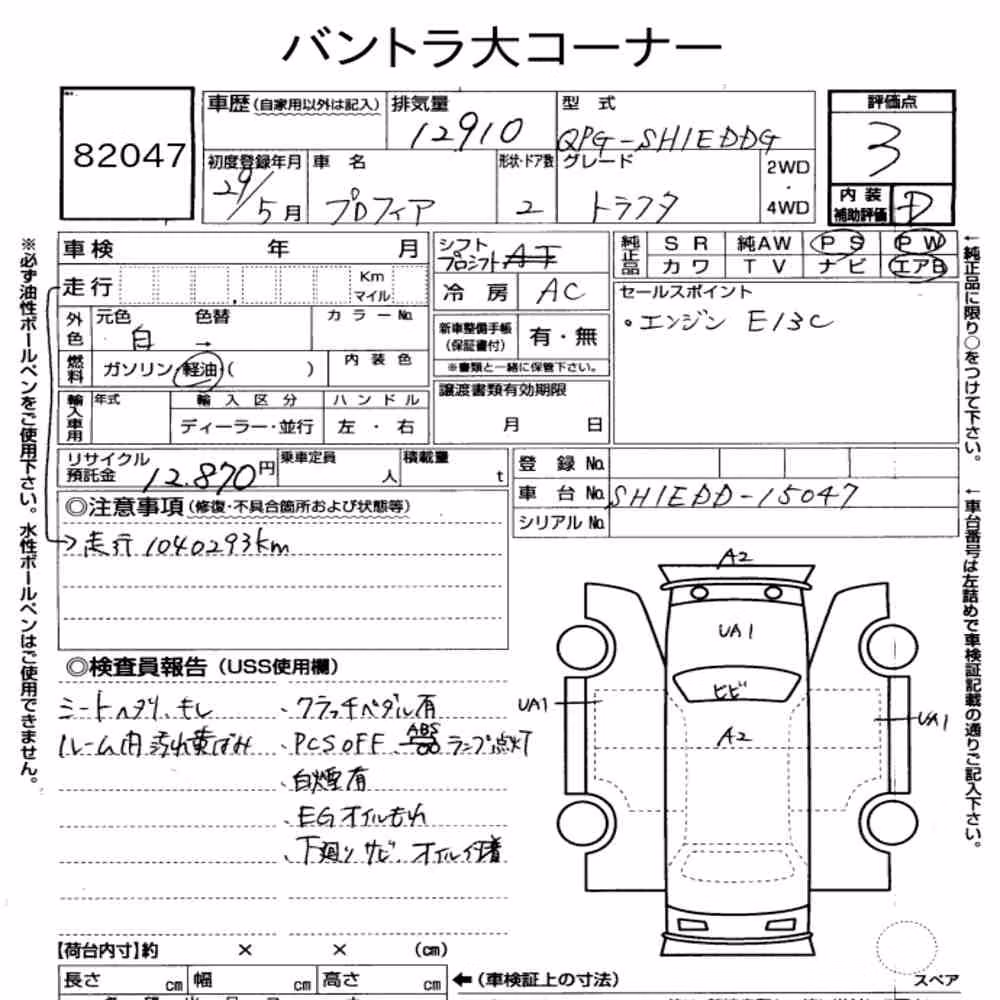 バントラ大コーナー
82047
車歴(自家用以外は記入)
排気量
12910
型 式
QPG-SH1EDDG
評価点
3
初度登録年月
29/5月
車 名
プロフィア
形状・ドア数
2
グレード
トラクタ
2WD
・
4WD
内 装
補助評価
D
車検 年 月
シフト
プロシフト AT
純正品
SR 純AW PS PW
カワ TV ナビ エアB
走行
Km
マイル
冷 房
AC
セールスポイント
・エンジン E13C
外色
元色 色替
白 →
カラーNo.
新車整備手帳
(保証書付)
有・無
※書類と一緒に保管下さい。
燃料
ガソリン・軽油・( )
内 装 色
輸入車用
年式
輸 入 区 分
ハ ン ド ル
ディーラー・並行
左 ・ 右
譲渡書類有効期限
月 日
リサイクル
預託金
12.870円
乗車定員
人
積載量
t
登 録 No.
車 台 No.
SH1EDD-15047
シリアル No.
◎注意事項(修復・不具合箇所および状態等)
→走行 1040293km
※必ず油性ボールペンをご使用下さい。水性ボールペンはご使用できません。
←純正品に限り○をつけて下さい。
←車台番号は左詰めで車検証記載の通りご記入下さい。
◎検査員報告(USS使用欄)
シートヘタリ、キレ
ルーム内 汚れ黄ばみ
・クラッチペダル有
・PCS OFF ABS ランプ点灯
・白煙有
・EGオイルもれ
・下廻り サビ、オイル付着
A2
UA1
ヒビ
UA1
A2
UA1
【荷台内寸】約 × × (cm)
長さ cm 幅 cm 高さ cm
←(車検証上の寸法)
スペア